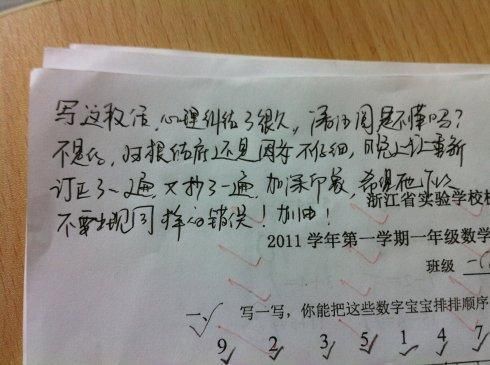 写这取信，心理纠结了很久，潘法国是不懂吗？
不是的，归根结底还是因为不仔细，昨晚上让重新
订正了一遍，又抄了一遍，加深印象，希望他下次
不要出现同样的错误！加油！
浙江省实验学校
2011 学年第一学期一年级数学
班级 一（
一、 写一写，你能把这些数字宝宝排排顺序
9 2 3 5 1 4 7